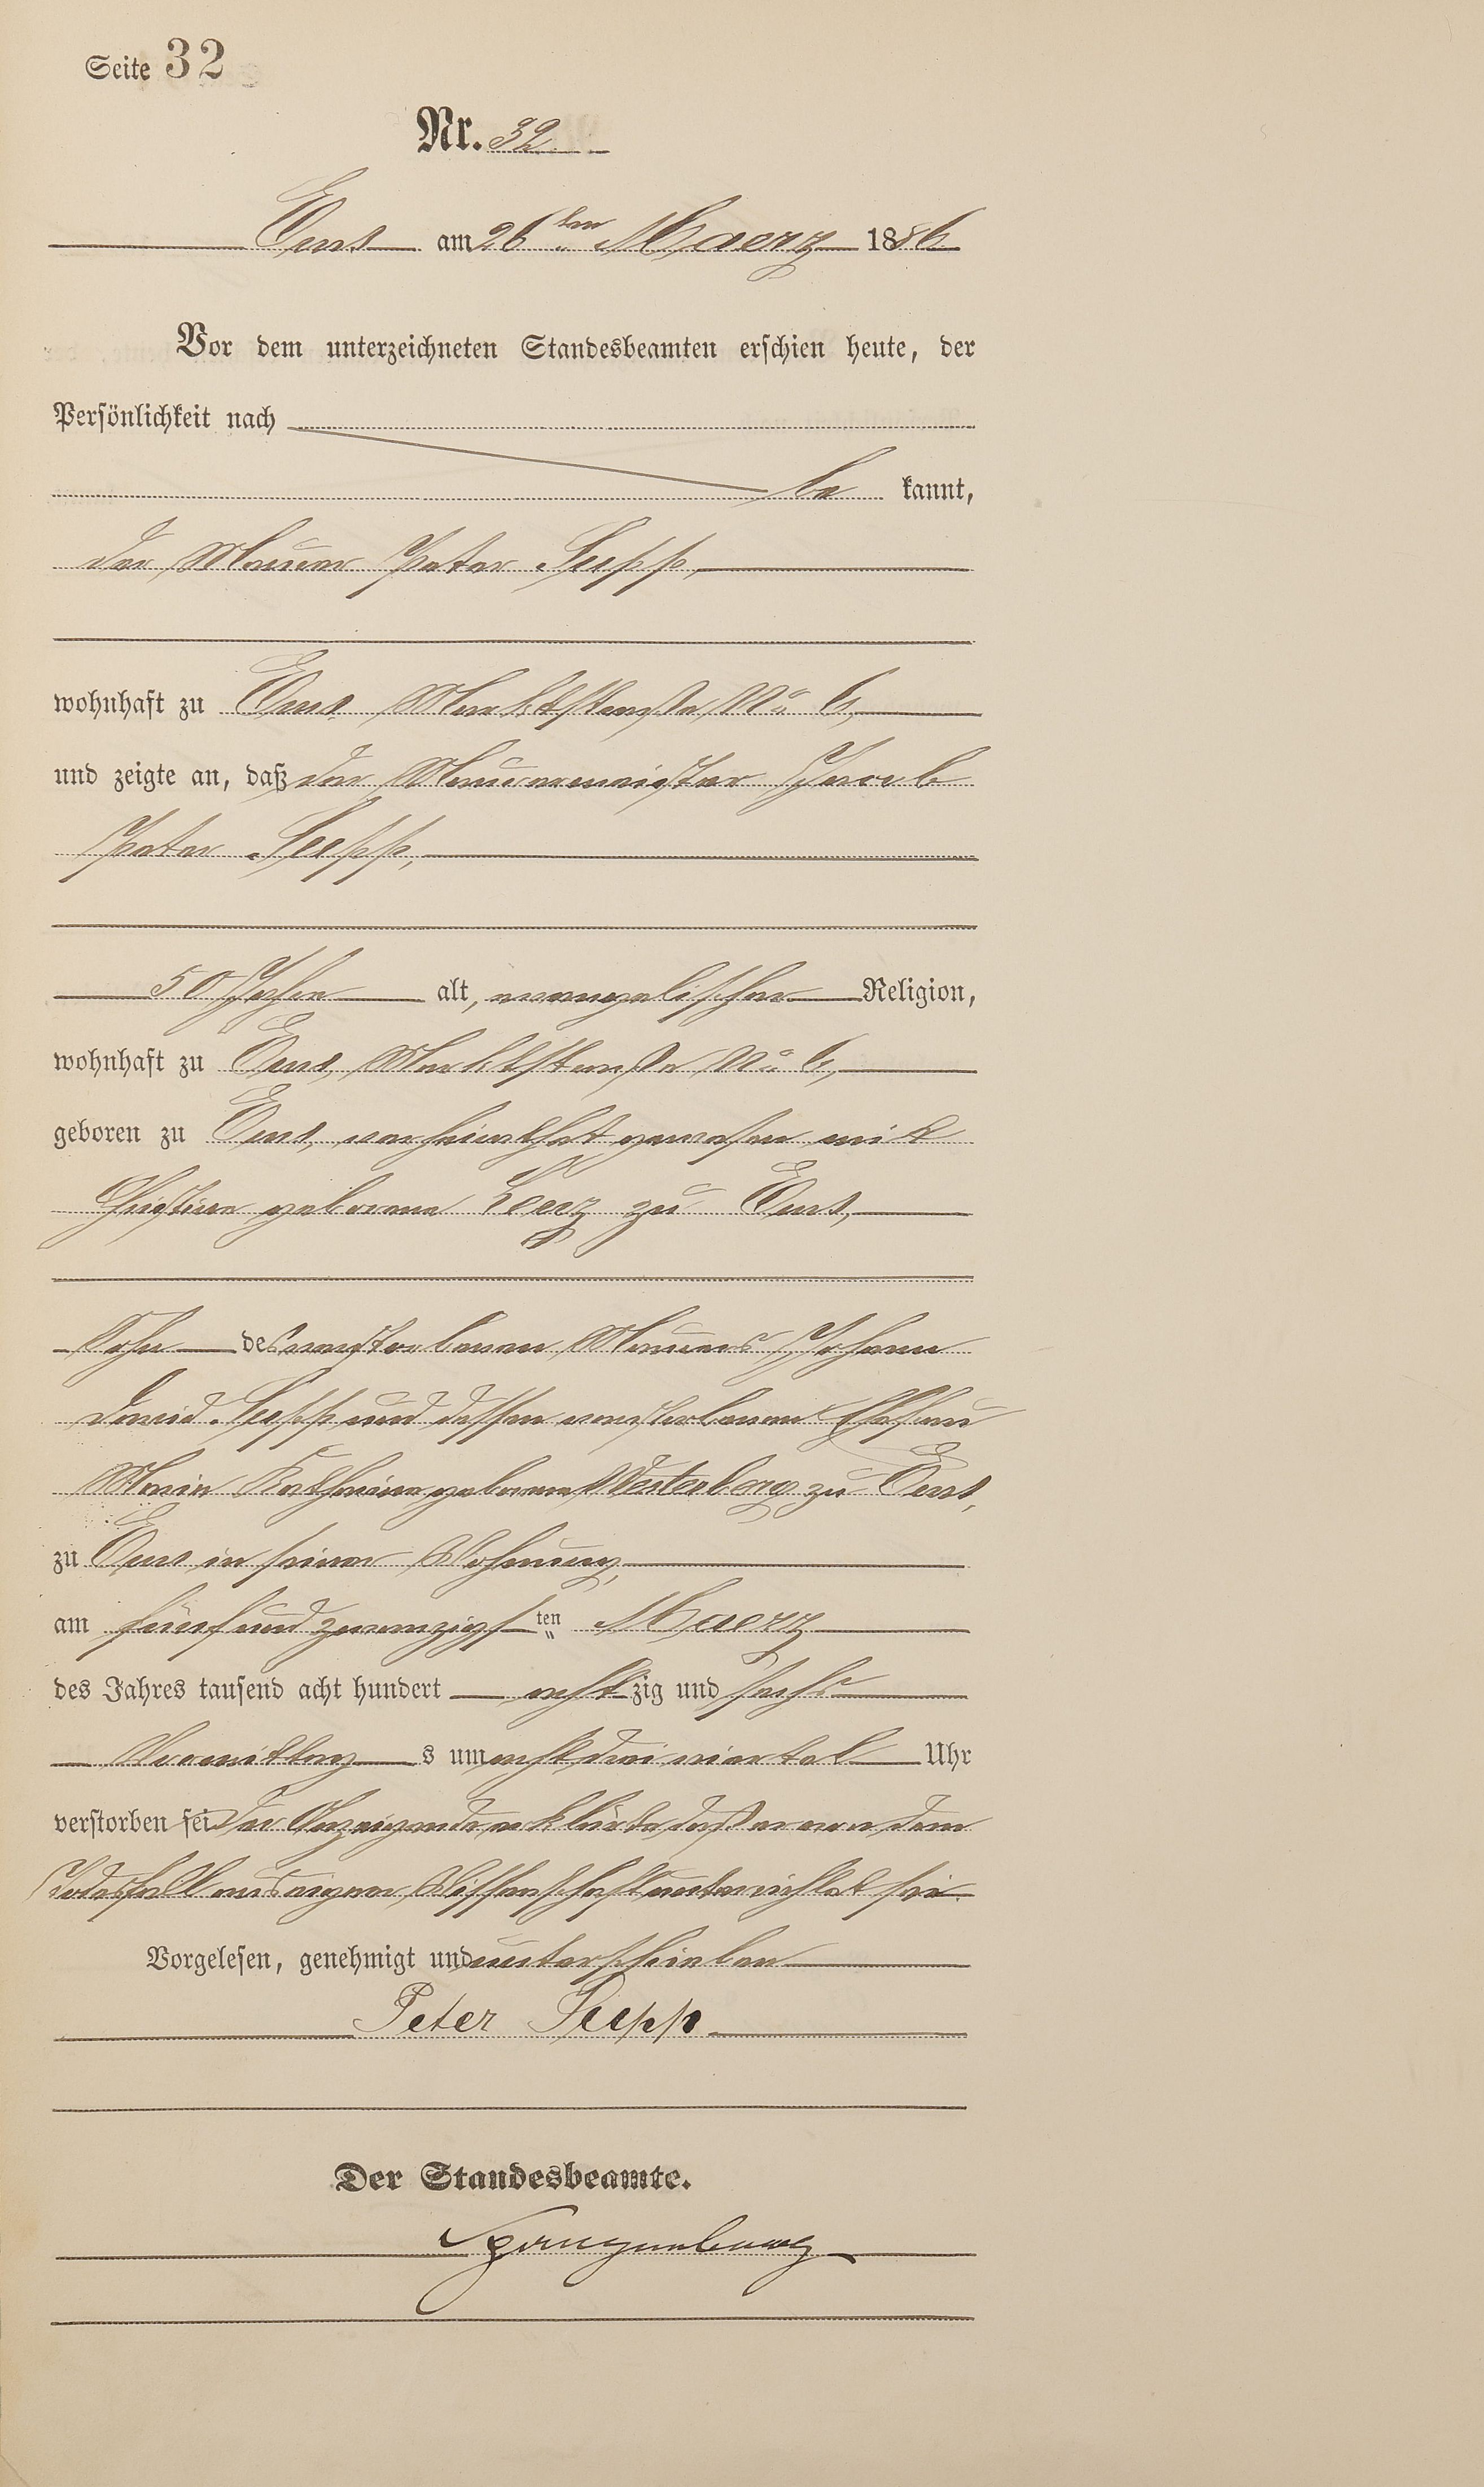 Seite 32
Nr. 32
Ems am 26ten Maerz 1886
Vor dem unterzeichneten Standesbeamten erschien heute, der
Persönlichkeit nach
be kannt,
der Maurer Peter Supp,
wohnhaft zu Ems, Marktstraße No 6,
und zeigte an, daß der Maurermeister Jacob
Peter Supp,
50 Jahre alt, evangelischer Religion,
wohnhaft zu Ems, Marktstraße No 6,
geboren zu Ems, verheirathet gewesen mit
Christine geborene zu Ems,
Sohn des verstorbenen Maurers Johann
David Supp und dessen verstorbenen Ehefrau
Marie Katharine geborene Westerberg zu Ems,
zu Ems in seiner Wohnung,
am fünf und zwanzigsten Maerz
des Jahres tausend acht hundert achtzig und sechs
Vormittags um acht drei viertel Uhr
verstorben sei. Der Anzeigende erklärte daß er von dem
Todesfall aus eigener Wissenschaft unterrichtet sei.
Vorgelesen, genehmigt und unterschrieben
Peter Supp
Der Standesbeamte.
Spangenberg